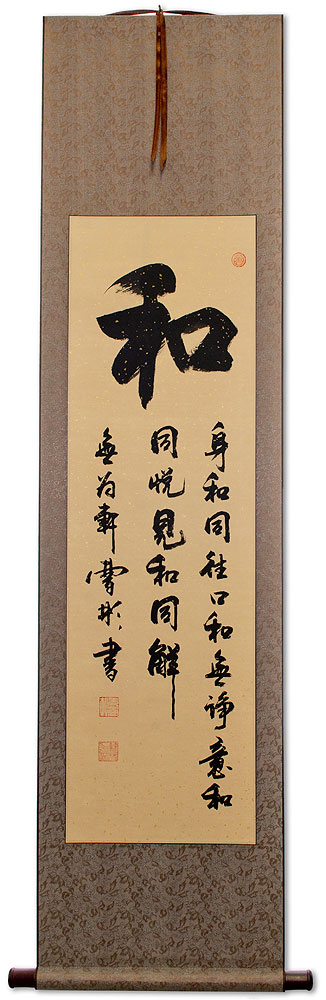 和
身和同住口和無諍意和
同悦見和同解
無為軒曹彬書